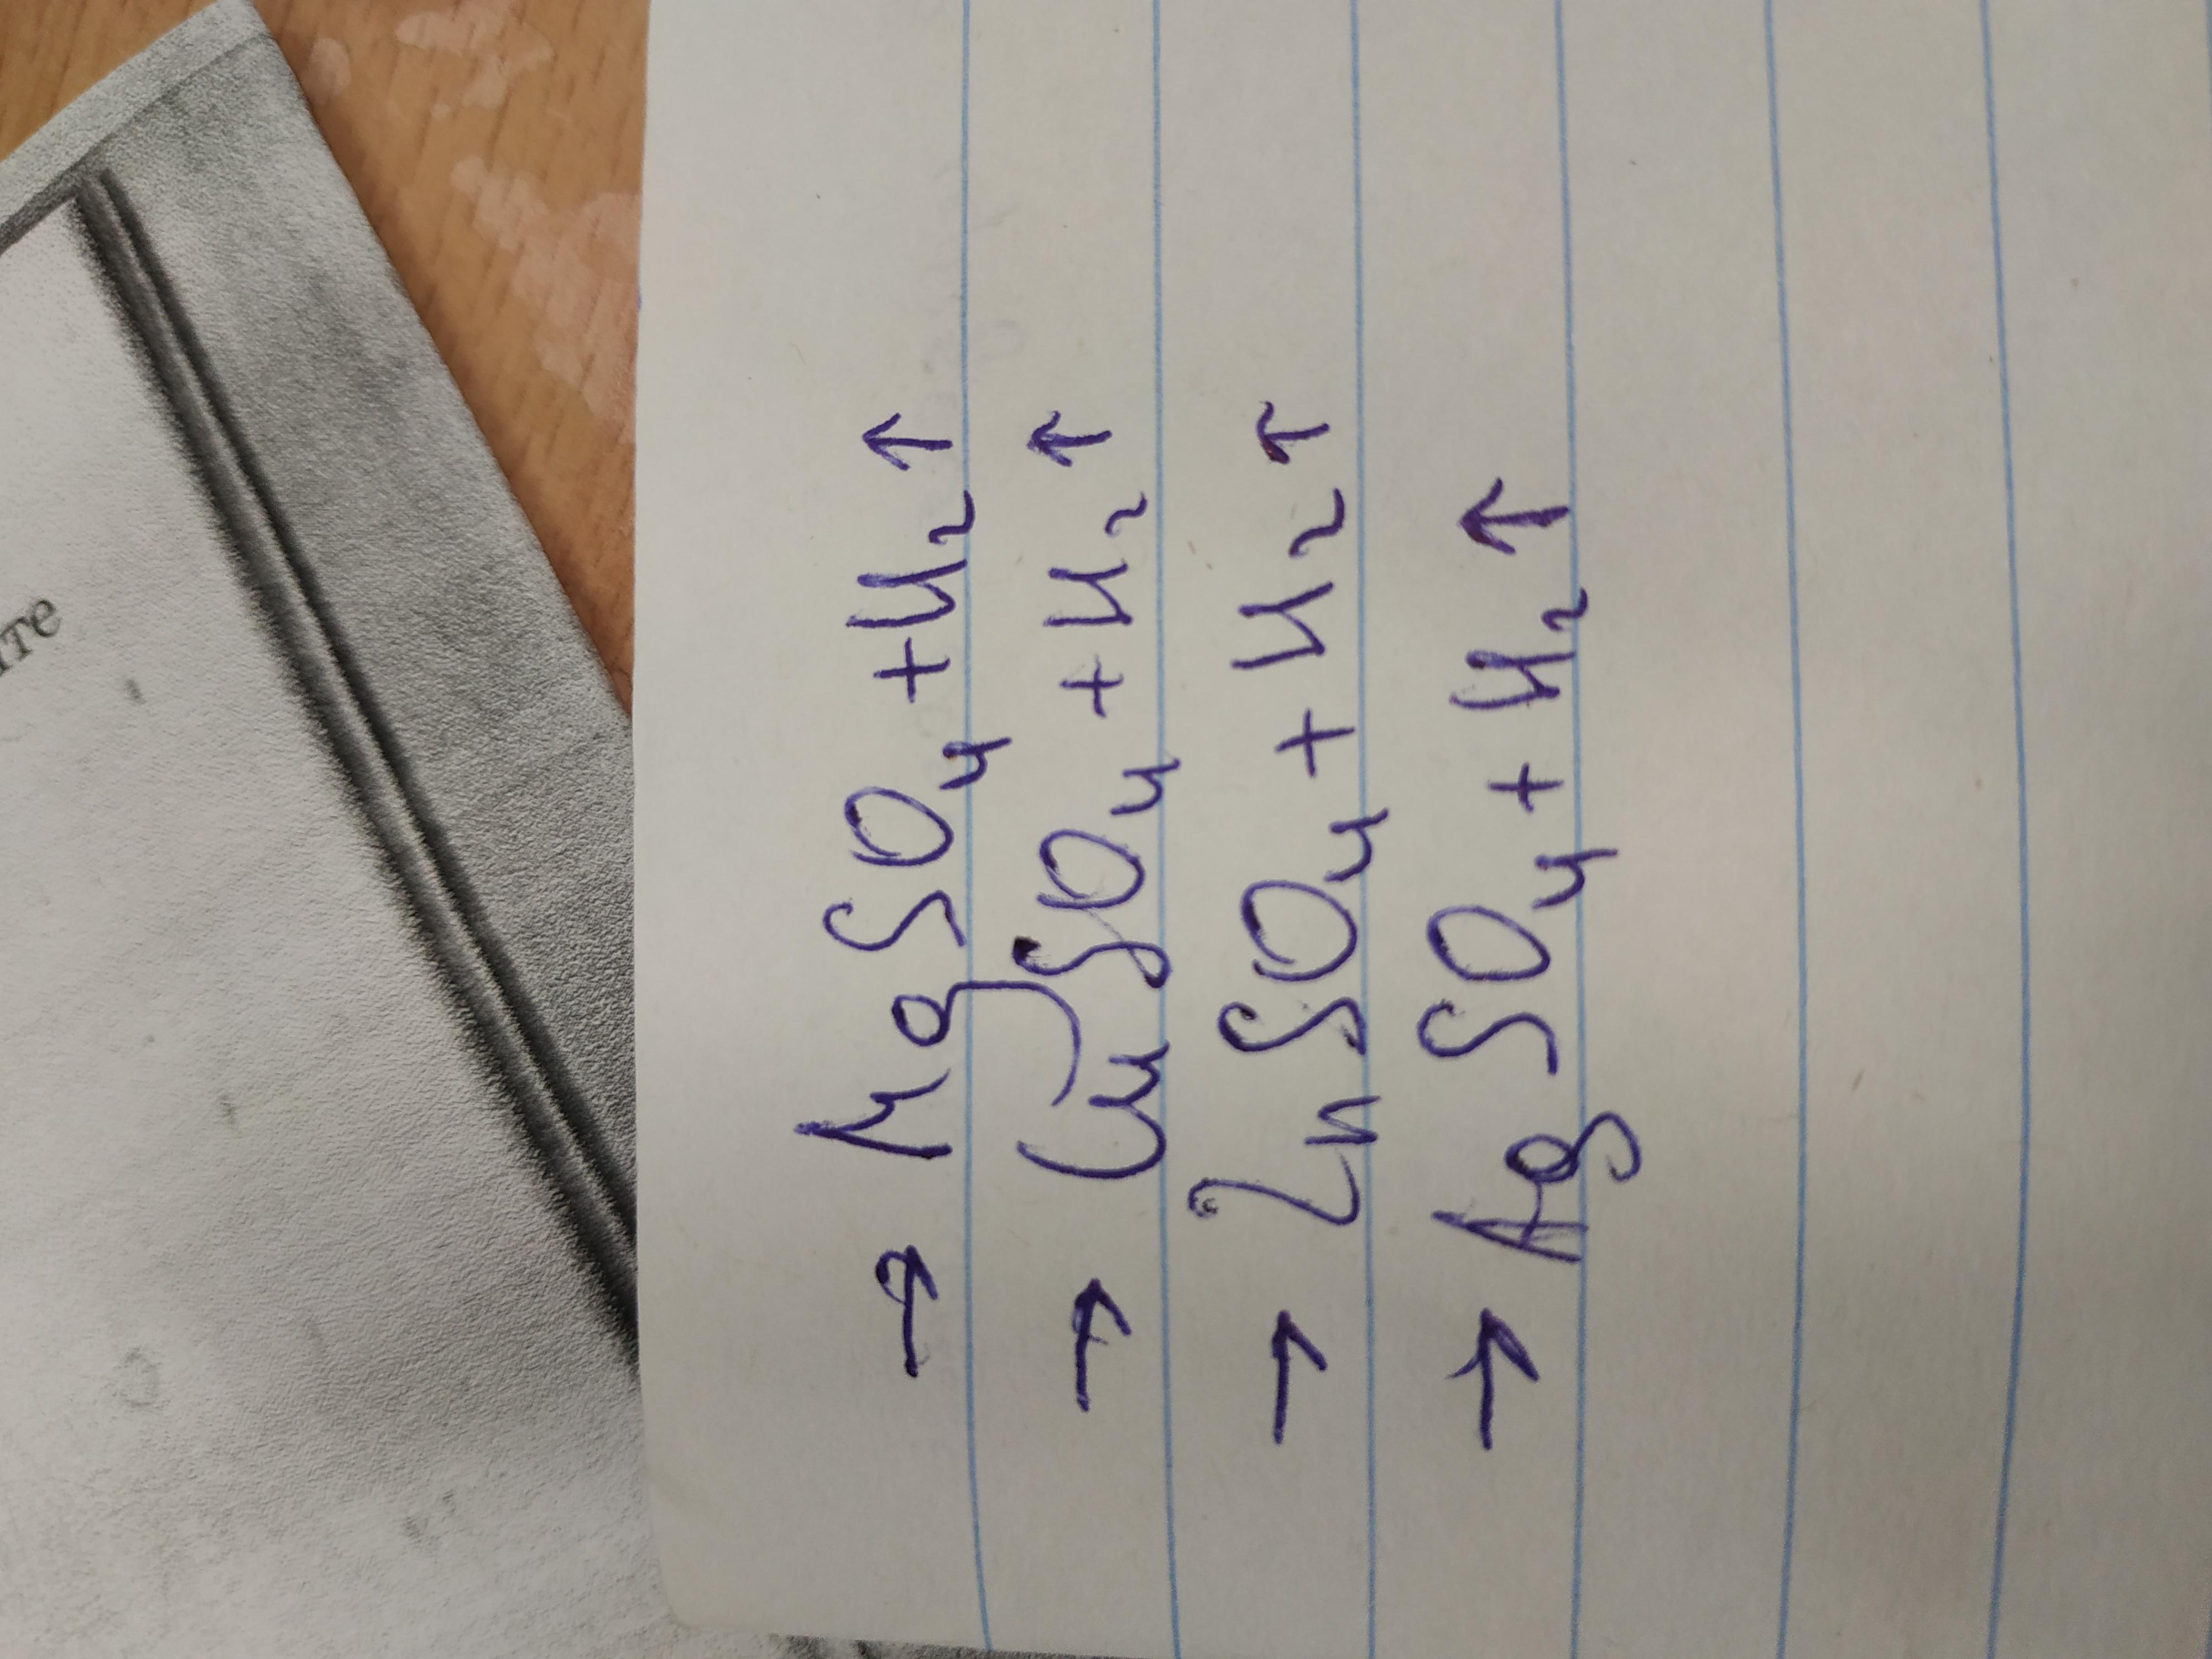 → MgSO₄ + H₂ ↑
→ CuSO₄ + H₂ ↑
→ ZnSO₄ + H₂ ↑
→ AgSO₄ + H₂ ↑